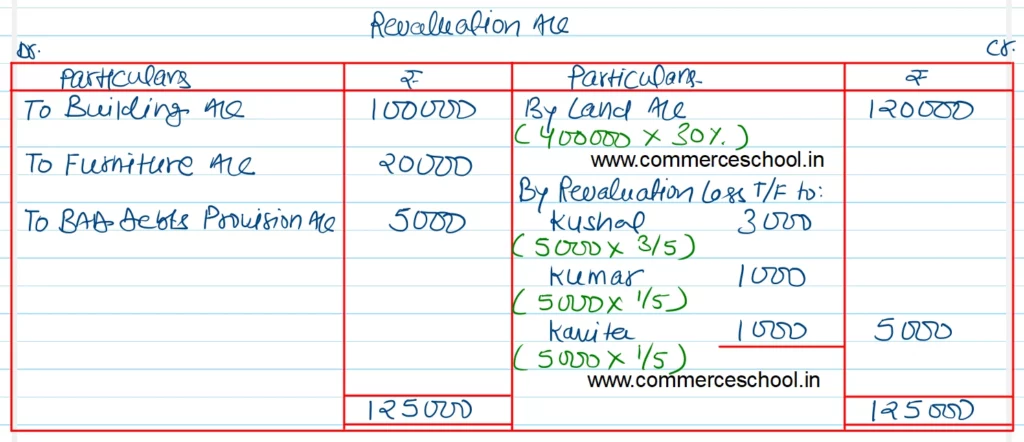 Revaluation A/c
Dr. Cr.
Particulars ₹ Particulars ₹
To Building A/c 100000 By Land A/c 120000
(400000 × 30%.)
www.commerceschool.in
To Furniture A/c 20000
By Revaluation Loss T/F to:
To BAD Debts Provision A/c 5000 Kushal 3000
(5000 × 3/5)
Kumar 1000
(5000 × 1/5)
Kavita 1000 5000
(5000 × 1/5)
www.commerceschool.in
125000 125000